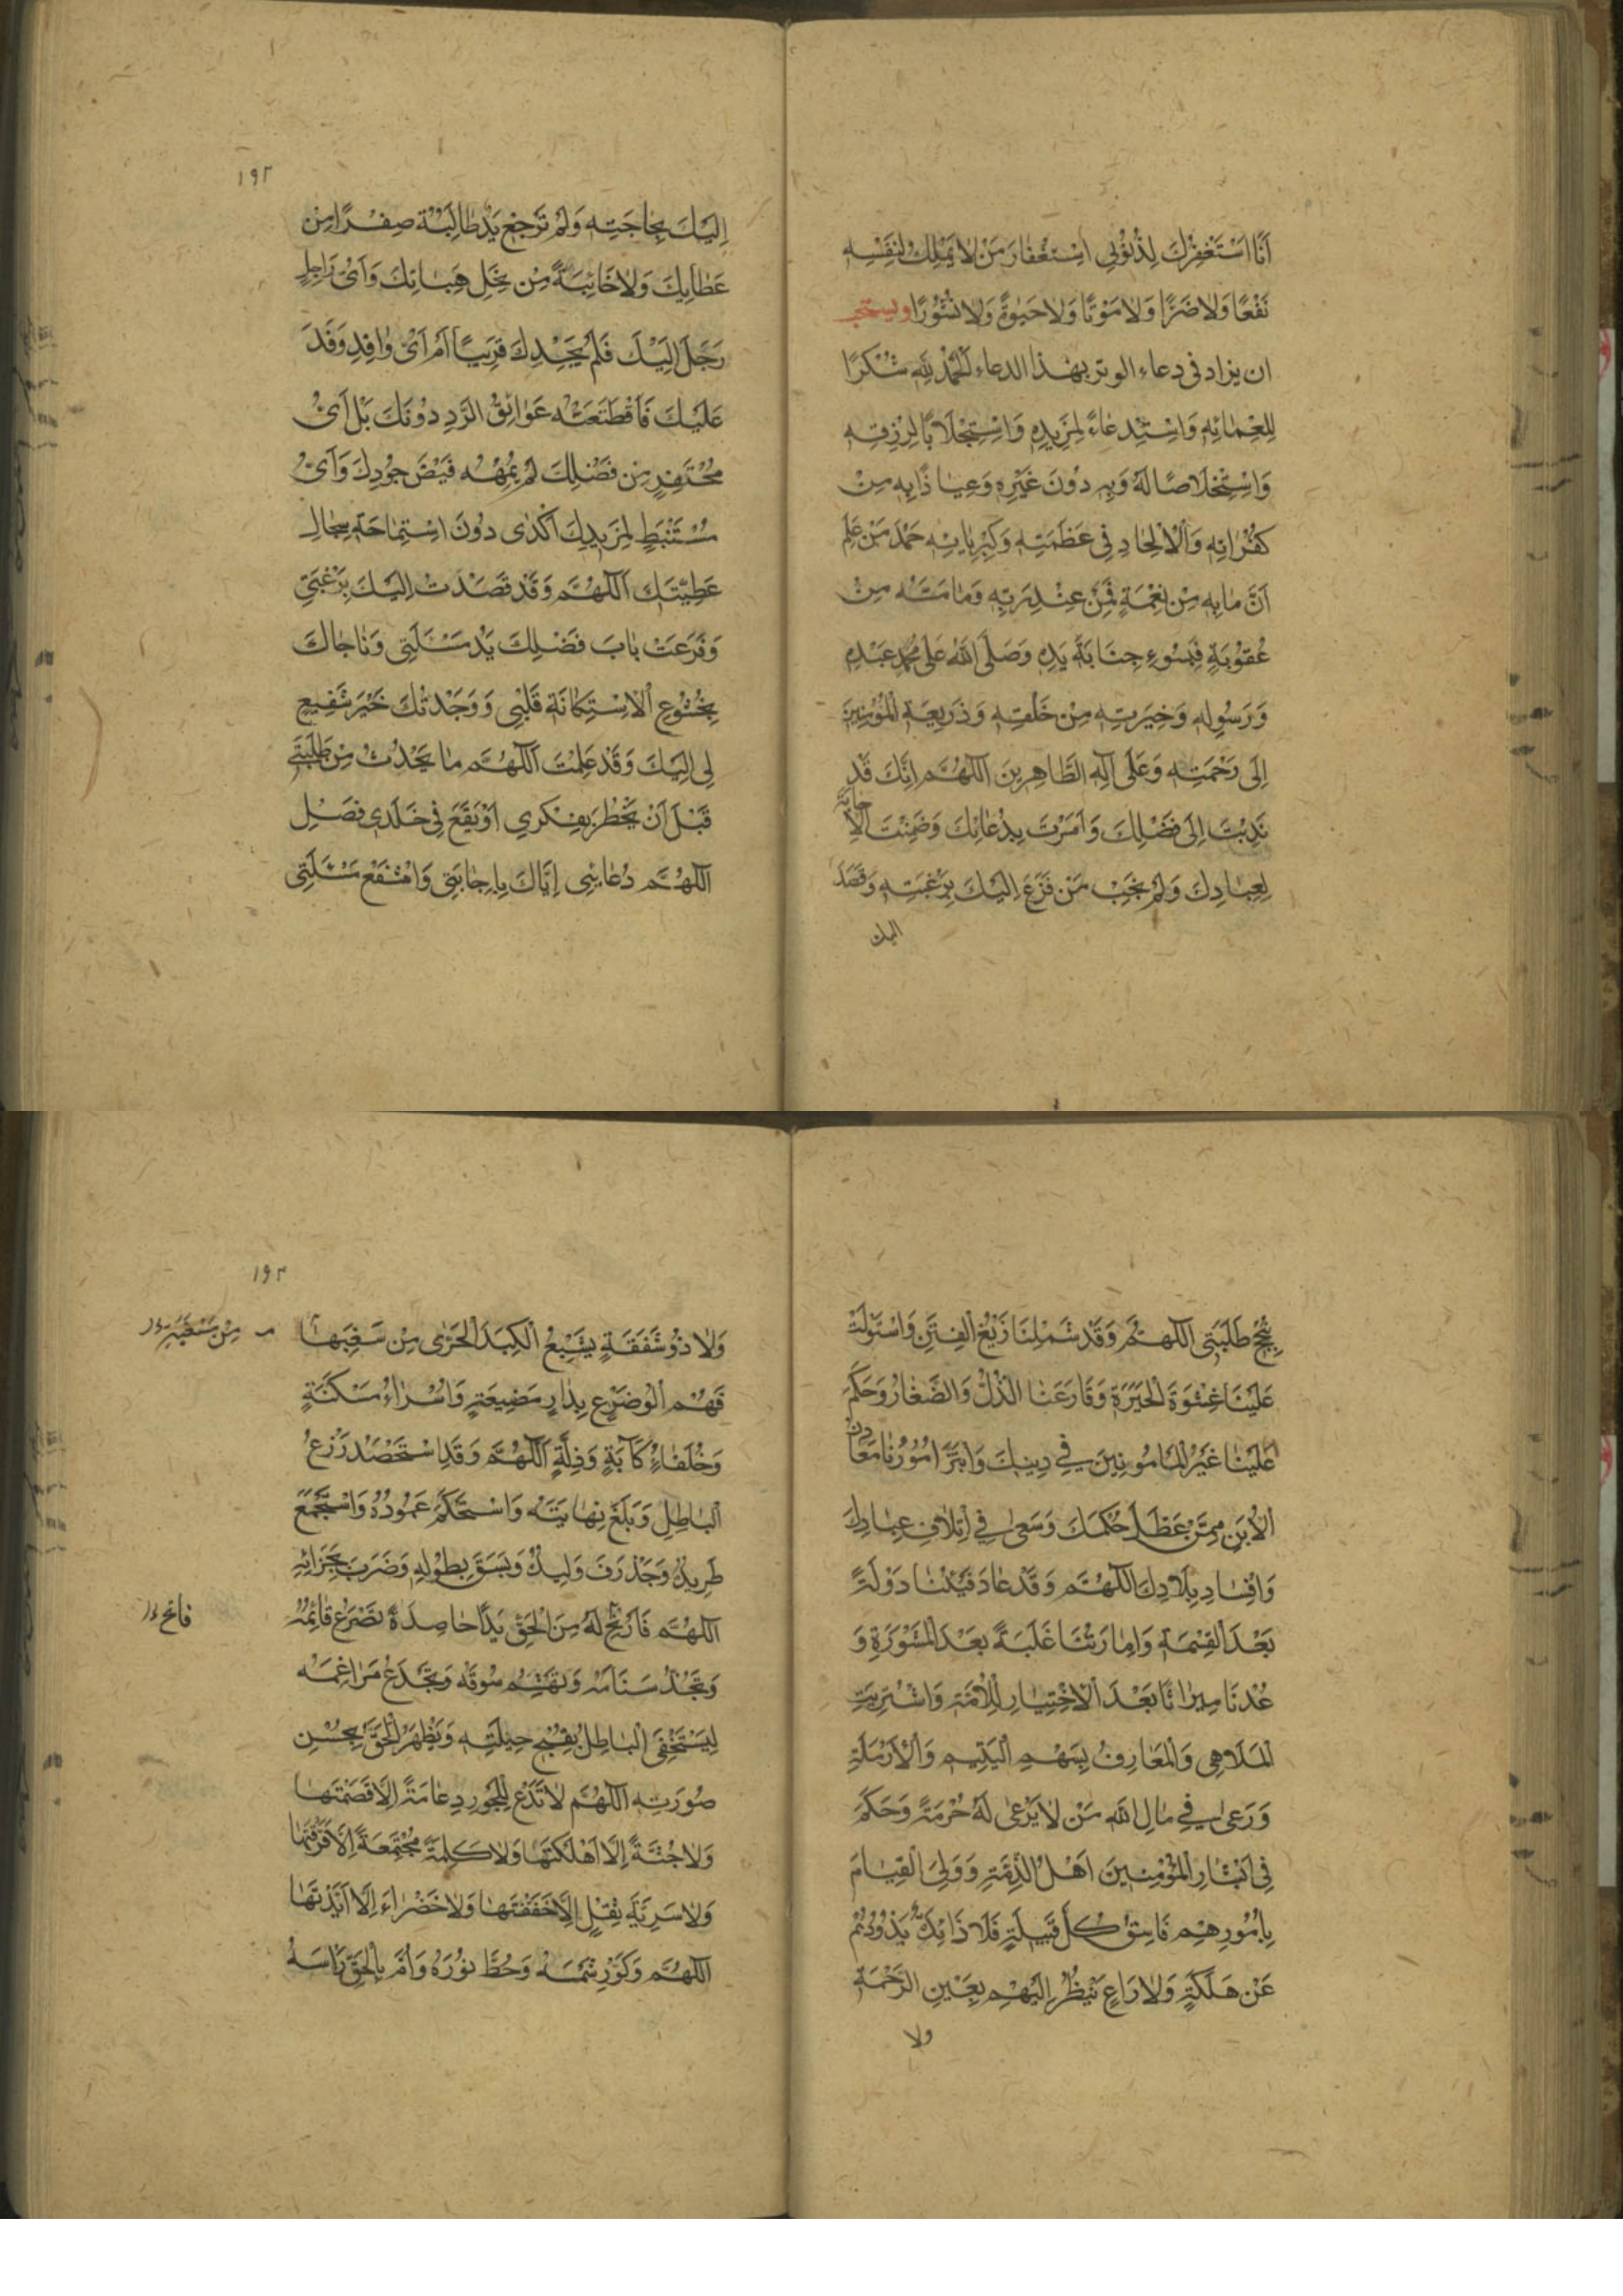 اَنَا اَسْتَغْفِرُكَ لِذُنُوْبِي اسْتِغْفَارَ مَنْ لَا يَمْلِكُ لِنَفْسِهِ
نَفْعًا وَلَا ضَرًّا وَلَا مَوْتًا وَلَا حَيٰوةً وَلَا نُشُوْرًا ويستحب
ان يزاد في دعاء الوتر بهذا الدعاء اَلْحَمْدُ لِلّٰهِ شُكْرًا
لِنِعْمَائِهِ وَاسْتِدْعَاءً لِمَزِيدِهِ وَاسْتِجْلَابًا لِرِزْقِهِ
وَاسْتِخْلَاصًا لَهُ وَبِهِ دُونَ غَيْرِهِ وَعِيَاذًا بِهِ مِنْ
كُفْرَانِهِ وَالْاِلْحَادِ فِي عَظَمَتِهِ وَكِبْرِيَائِهِ حَمْدَ مَنْ عَلِمَ
اَنَّ مَا بِهِ مِنْ نِعْمَةٍ فَمِنْ عِنْدِ رَبِّهِ وَمَا مَسَّهُ مِنْ
عُقُوْبَةٍ فَبِسُوْءِ جِنَايَةِ يَدِهِ وَصَلَّى اللّٰهُ عَلٰى مُحَمَّدٍ عَبْدِهِ
وَرَسُولِهِ وَخِيَرَتِهِ مِنْ خَلْقِهِ وَذَرِيعَةِ الْمُؤْمِنِينَ
اِلٰى رَحْمَتِهِ وَعَلٰى آلِهِ الطَّاهِرِينَ اَللّٰهُمَّ اِنَّكَ قَدْ
نَدَبْتَ اِلٰى فَضْلِكَ وَاَمَرْتَ بِدُعَائِكَ وَضَمِنْتَ الْاِجَابَةَ
لِعِبَادِكَ وَلَمْ يَخِبْ مَنْ فَزِعَ اِلَيْكَ بِرَغْبَتِهِ وَقَصَدَ
اليك
١٩٢
اِلَيْكَ بِحَاجَتِهِ وَلَمْ تَرْجِعْ يَدٌ طَالِبَةٌ صِفْرًا مِنْ
عَطَائِكَ وَلَا خَائِبَةً مِنْ نِحَلِ هِبَاتِكَ وَاَيُّ رَاحِلٍ
رَحَلَ اِلَيْكَ فَلَمْ يَجِدْكَ قَرِيبًا اَمْ اَيُّ وَافِدٍ وَفَدَ
عَلَيْكَ فَاقْتَطَعَتْهُ عَوَائِقُ الرَّدِّ دُوْنَكَ بَلْ اَيُّ
مُحْتَفِرٍ مِنْ فَضْلِكَ لَمْ يُمْهِهِ فَيْضُ جُودِكَ وَاَيُّ
مُسْتَنْبِطٍ لِمَزِيدِكَ اَكْدٰى دُونَ اسْتِمَاحَةِ سِجَالِ
عَطِيَّتِكَ اَللّٰهُمَّ وَقَدْ قَصَدْتُ اِلَيْكَ بِرَغْبَتِي
وَقَرَعَتْ بَابَ فَضْلِكَ يَدُ مَسْئَلَتِي وَنَاجَاكَ
بِخُشُوْعِ الْاِسْتِكَانَةِ قَلْبِي وَوَجَدْتُكَ خَيْرَ شَفِيعٍ
لِي اِلَيْكَ وَقَدْ عَلِمْتَ اَللّٰهُمَّ مَا يَحْدُثُ مِنْ طَلِبَتِي
قَبْلَ اَنْ يَخْطُرَ بِفِكْرِي اَوْ يَقَعَ فِي خَلَدِي فَصِلِ
اَللّٰهُمَّ دُعَائِي اِيَّاكَ بِاِجَابَتِي وَاشْفَعْ مَسْئَلَتِي
بِنُجْحِ طَلِبَتِي اَللّٰهُمَّ وَقَدْ شَمِلَنَا زَيْغُ الْفِتَنِ وَاسْتَوْلَتْ
عَلَيْنَا غِشْوَةُ الْحَيْرَةِ وَقَارَعَنَا الذُّلُّ وَالصَّغَارُ وَحَكَمَ
عَلَيْنَا غَيْرُ الْمَأْمُونِينَ فِي دِينِكَ وَابْتَزَّ اُمُوْرَنَا مَعَادِنُ
الْاُبَنِ مِمَّنْ عَطَّلَ حُكْمَكَ وَسَعٰى فِي اِتْلَافِ عِبَادِكَ
وَاِفْسَادِ بِلَادِكَ اَللّٰهُمَّ وَقَدْ عَادَ فَيْئُنَا دَوْلَةً
بَعْدَ الْقِسْمَةِ وَاِمَارَتُنَا غَلَبَةً بَعْدَ الْمَشْوَرَةِ وَ
عُدْنَا مِيرَاثًا بَعْدَ الْاِخْتِيَارِ لِلْاُمَّةِ وَاشْتُرِيَتِ
الْمَلَاهِي وَالْمَعَازِفُ بِسَهْمِ الْيَتِيمِ وَالْاَرْمَلَةِ
وَرَعٰى فِي مَالِ اللّٰهِ مَنْ لَا يَرْعٰى لَهُ حُرْمَةً وَحَكَمَ
فِي اَبْشَارِ الْمُؤْمِنِينَ اَهْلُ الذِّمَّةِ وَوَلِيَ الْقِيَامَ
بِاُمُورِهِمْ فَاسِقُ كُلِّ قَبِيلَةٍ فَلَا ذَائِدٌ يَذُوْدُهُمْ
عَنْ هَلَكَةٍ وَلَا رَاعٍ يَنْظُرُ اِلَيْهِمْ بِعَيْنِ الرَّحْمَةِ
ولا
١٩٣
وَلَا ذُوْ شَفَقَةٍ يُشْبِعُ الْكَبِدَ الْحَرّٰى مِنْ سَغَبِهَا
مِنْ مَسْغَبَةٍ
فَهُمْ اُولُوْ ضَرَعٍ بِدَارِ مَضِيعَةٍ وَاُسَرَاءُ مَسْكَنَةٍ
وَخُلَفَاءُ كَآبَةٍ وَذِلَّةٍ اَللّٰهُمَّ وَقَدِ اسْتَحْصَدَ زَرْعُ
الْبَاطِلِ وَبَلَغَ نِهَايَتَهُ وَاسْتَحْكَمَ عَمُوْدُهُ وَاسْتَجْمَعَ
طَرِيدُهُ وَخَذْرَفَ وَلِيدُهُ وَبَسَقَ بِطَوْلِهِ وَضَرَبَ بِجِرَانِهِ
اَللّٰهُمَّ فَاَتِحْ لَهُ مِنَ الْحَقِّ يَدًا حَاصِدَةً تَصْرَعُ قَائِمَهُ
فاتح
وَتَجُذُّ سَنَامَهُ وَتَهْشِمُ سُوْقَهُ وَتَجْدَعُ مَرَاغِمَهُ
لِيَسْتَخْفِيَ الْبَاطِلُ بِقُبْحِ حِيلَتِهِ وَيَظْهَرَ الْحَقُّ بِحُسْنِ
صُورَتِهِ اَللّٰهُمَّ لَا تَدَعْ لِلْجَوْرِ دِعَامَةً اِلَّا قَصَمْتَهَا
وَلَا جُنَّةً اِلَّا اَهْلَكْتَهَا وَلَا كَلِمَةً مُجْتَمِعَةً اِلَّا فَرَّقْتَهَا
وَلَا سَرِيَّةَ ثِقْلٍ اِلَّا خَفَّفْتَهَا وَلَا خَضْرَاءَ اِلَّا اَبَدْتَهَا
اَللّٰهُمَّ وَكَوِّرْ شَمْسَهُ وَحُطَّ نُوْرَهُ وَاُمَّ بِالْحَقِّ رَأْسَهُ